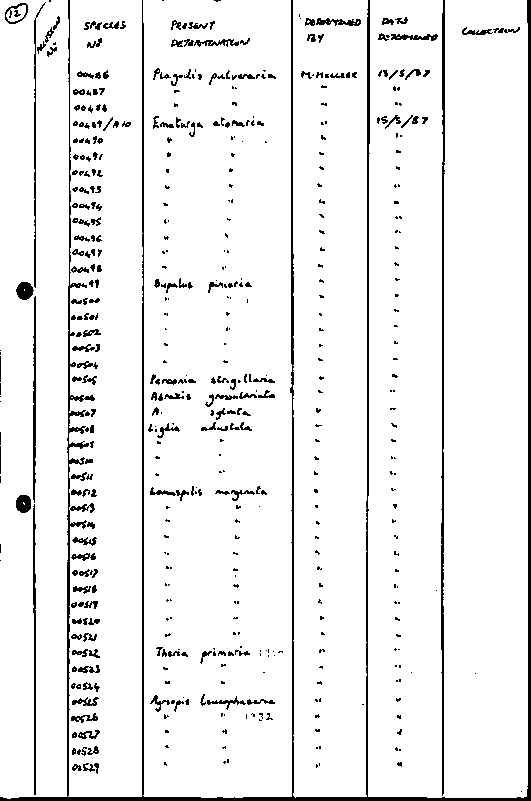 12
ACCESSION Nº SPECIES Nº PRESENT DETERMINATION DETERMINED BY DATE DETERMINED COLLECTION
00486 Plagodis pulveraria M. Heller 13/5/87
00487 " " " "
00488 " " " "
00489/A10 Ematurga atomaria " 15/5/87
00490 " " " "
00491 " " " "
00492 " " " "
00493 " " " "
00494 " " " "
00495 " " " "
00496 " " " "
00497 " " " "
00498 " " " "
00499 Bupalus piniaria " "
00500 " " " "
00501 " " " "
00502 " " " "
00503 " " " "
00504 " " " "
00505 Perconia strigillaria " "
00506 Abraxis grossulariata " "
00507 A. sylvata " "
00508 Ligdia adustata " "
00509 " " " "
00510 " " " "
00511 " " " "
00512 Lomaspilis marginata " "
00513 " " " "
00514 " " " "
00515 " " " "
00516 " " " "
00517 " " " "
00518 " " " "
00519 " " " "
00520 " " " "
00521 " " " "
00522 Theria primaria " "
00523 " " " "
00524 " " " "
00525 Agriopis leucophaearia " "
00526 " " 1932 " "
00527 " " " "
00528 " " " "
00529 " " " "